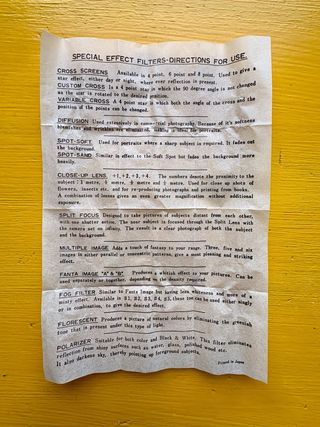 SPECIAL EFFECT FILTERS-DIRECTIONS FOR USE.
CROSS SCREENS   Available in 4 point, 6 point and 8 point. Used to give a
star effect, either day or night, where ever reflection is present.
CUSTOM CROSS Is a 4 point star in which the 90 degree angle is not changed
as the star is rotated to the desired position.
VARIABLE CROSS A 4 point star in which both the angle of the cross and the
position of the points can be changed.
DIFFUSION   Used extensively in commercial photography. Because of it's softness
blemishes and wrinkles are eliminated, making is ideal for portraits.
SPOT-SOFT.   Used for portraits where a sharp subject is required. It fades out
the background.
SPOT-SAND.   Similar in effect to the Soft Spot but fades the background more
heavily.
CLOSE-UP LENS.   +1,+2,+3,+4.   The numbers denote the proximity to the
subject: 1 metre, ½ metre, ⅓ metre and ¼ metre. Used for close up shots of
flowers, insects etc. and for re-producing photographs and printing from books.
A combination of lenses gives an even greater magnification without additional
exposure.
SPLIT FOCUS   Designed to take pictures of subjects distant from each other,
with one shutter action. The near subject is focused through the Split Lens with
the camera set on infinity. The result is a clear photograph of both the subject
and the background.
MULTIPLE IMAGE   Adds a touch of fantasy to your range. Three, five and six
images in either parallel or concentric patterns, give a most pleasing and striking
effect.
FANTA IMAGE "A" & "B".   Produces a whitish effect to your pictures. Can be
used separately or together, depending on the density required.
FOG FILTER   Similar to Fanta Image but having less whiteness and more of a
misty effect. Available in S1, S2, S3, S4, S5, these too can be used either singly
or in combination, to give the desired effect.
FLORESCENT   Produces a picture of natural colors by eliminating the greenish
tone that is present under this type of light.
POLARIZER   Suitably for both color and Black & White. This filter eliminates
reflection from shiny surfaces such as water, glass, polished wood etc.
It also darkens sky, thereby pointing up foreground subjects.
Printed in Japan